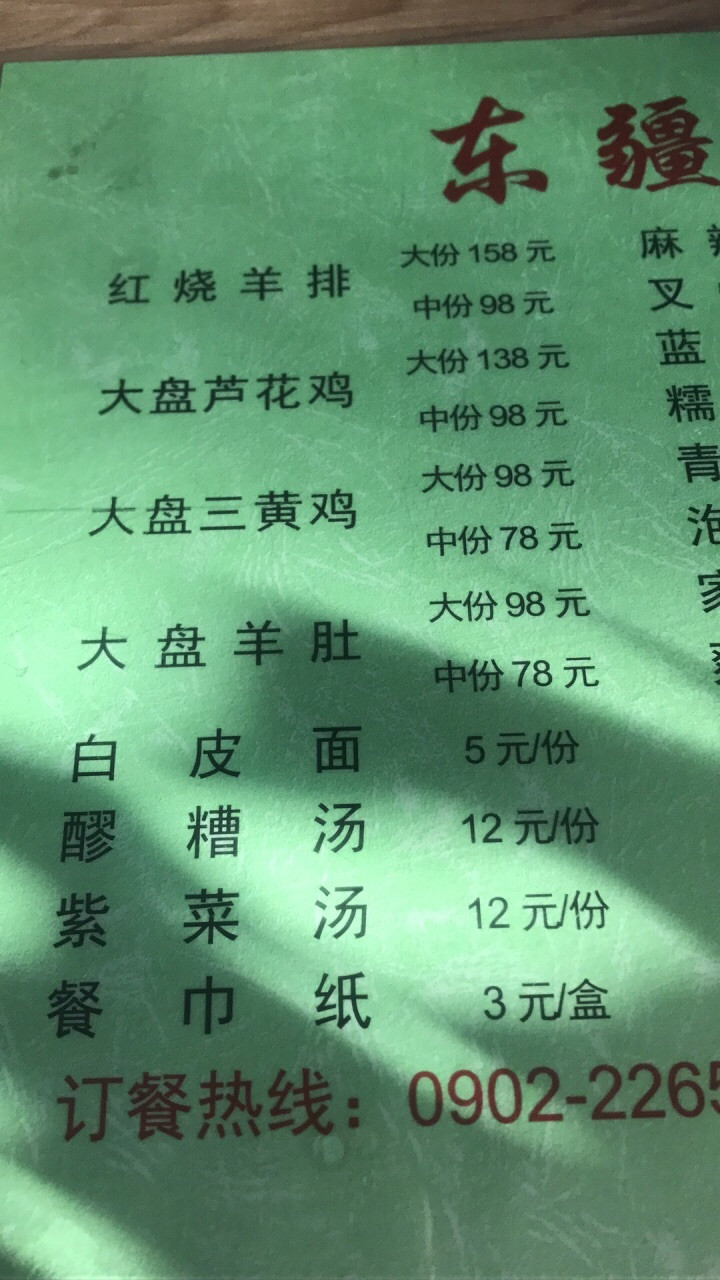 东疆
红烧羊排 大份 158 元
中份 98 元
大盘芦花鸡 大份 138 元
中份 98 元
大盘三黄鸡 大份 98 元
中份 78 元
大盘羊肚 大份 98 元
中份 78 元
白皮面 5 元/份
醪糟汤 12 元/份
紫菜汤 12 元/份
餐巾纸 3 元/盒
订餐热线：0902-2265
麻辣
叉
蓝
糯
青
泡
家